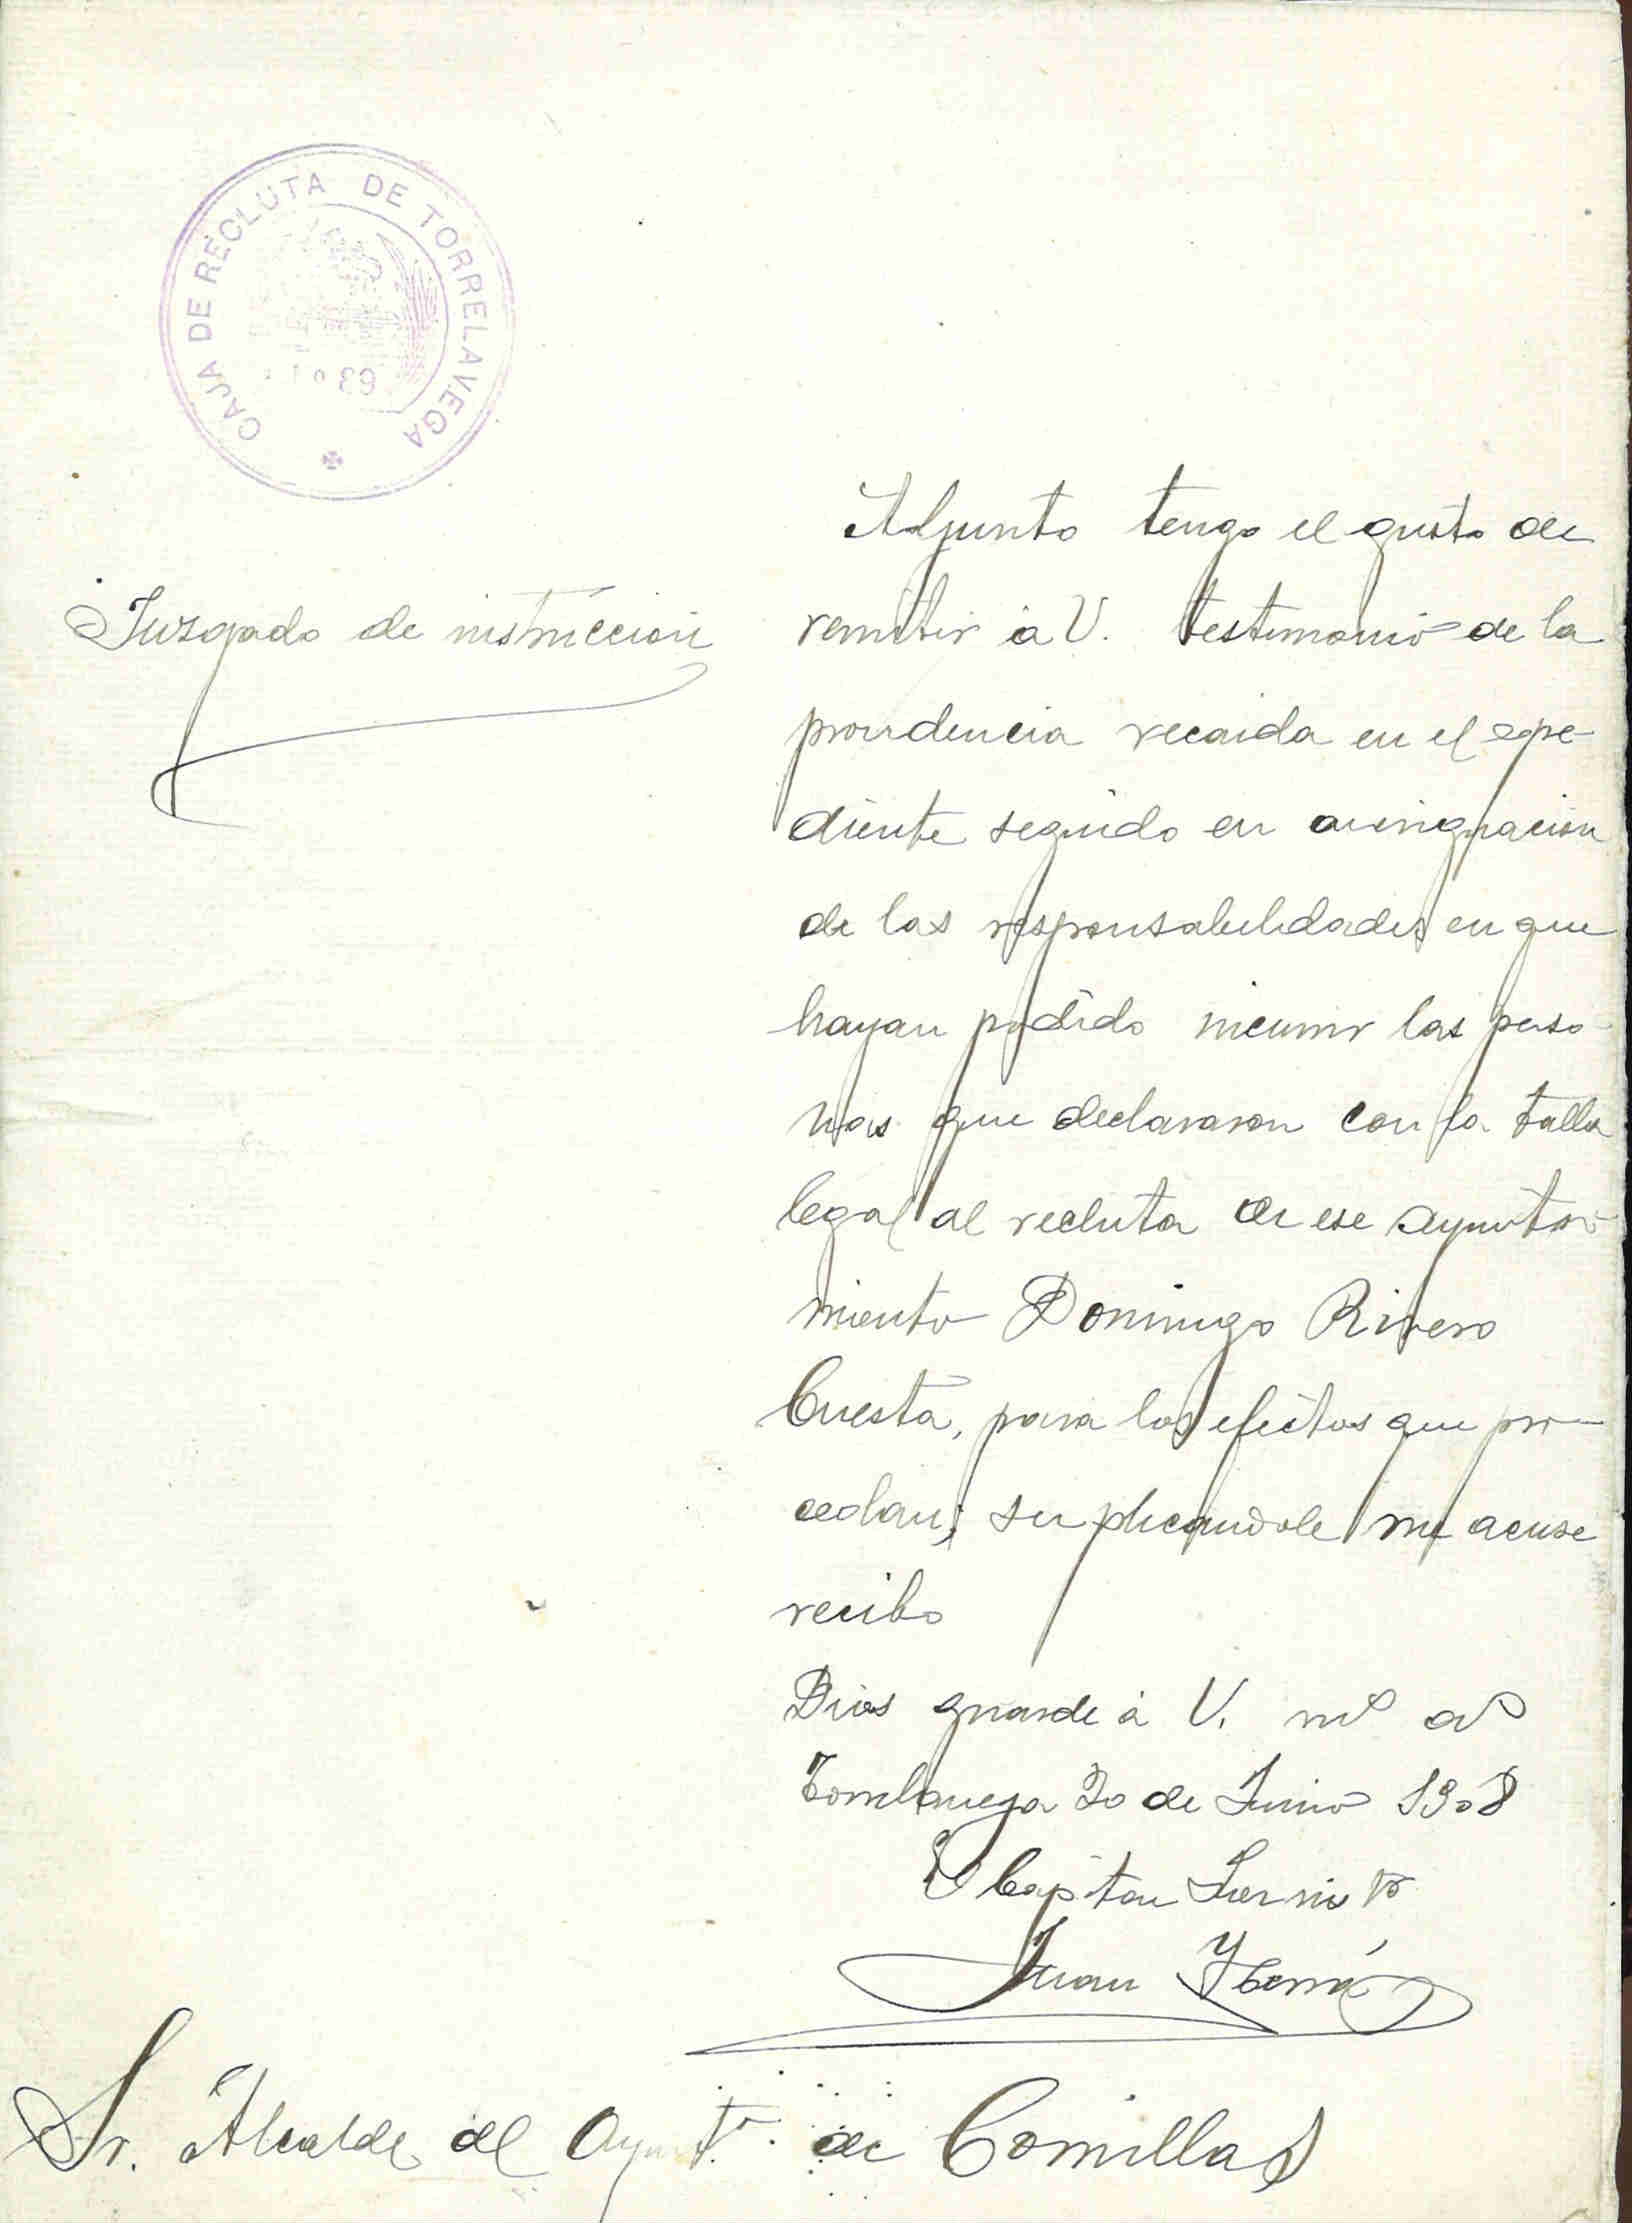 CAJA DE RECLUTA DE TORRELAVEGA
Juzgado de instrucción
Adjunto tengo el gusto de
remitir á V. testimonio de la
providencia recaida en el espe-
diente seguido en averiguacion
de las responsabilidades en que
hayan podido incurrir las perso-
nas que declararon con la talla
legal al recluta de ese ayunta-
miento Domingo Rivero
Cuesta, para los efectos que pro-
cedan; suplicandole me acuse
recibo
Dios guarde á V. ms as
Torrelavega 20 de Junio 1908
El Capitan Juez instr
Juan
Sr. Alcalde del Ayunt.o de Comillas